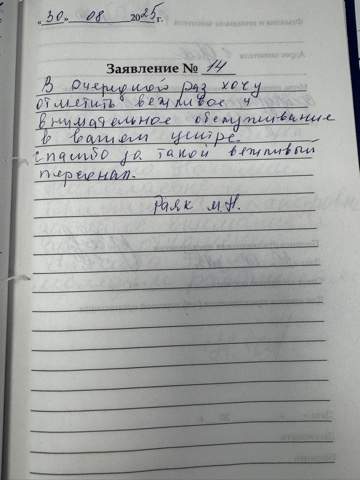 „30“ 08 2025г.
Заявление № 14
В очередной раз хочу
отметить вежливое и
внимательное обслуживание
в вашем центре.
спасибо за такой вежливый
персонал.
Раяк М.Н.